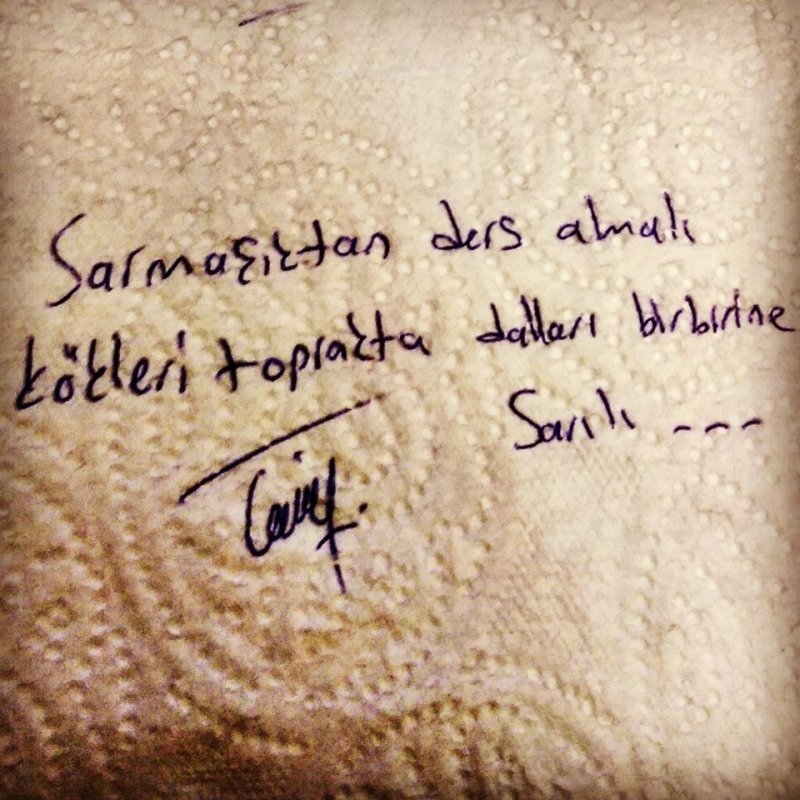 Sarmaşıktan ders almalı
kökleri toprakta dalları birbirine
Sarılı ---